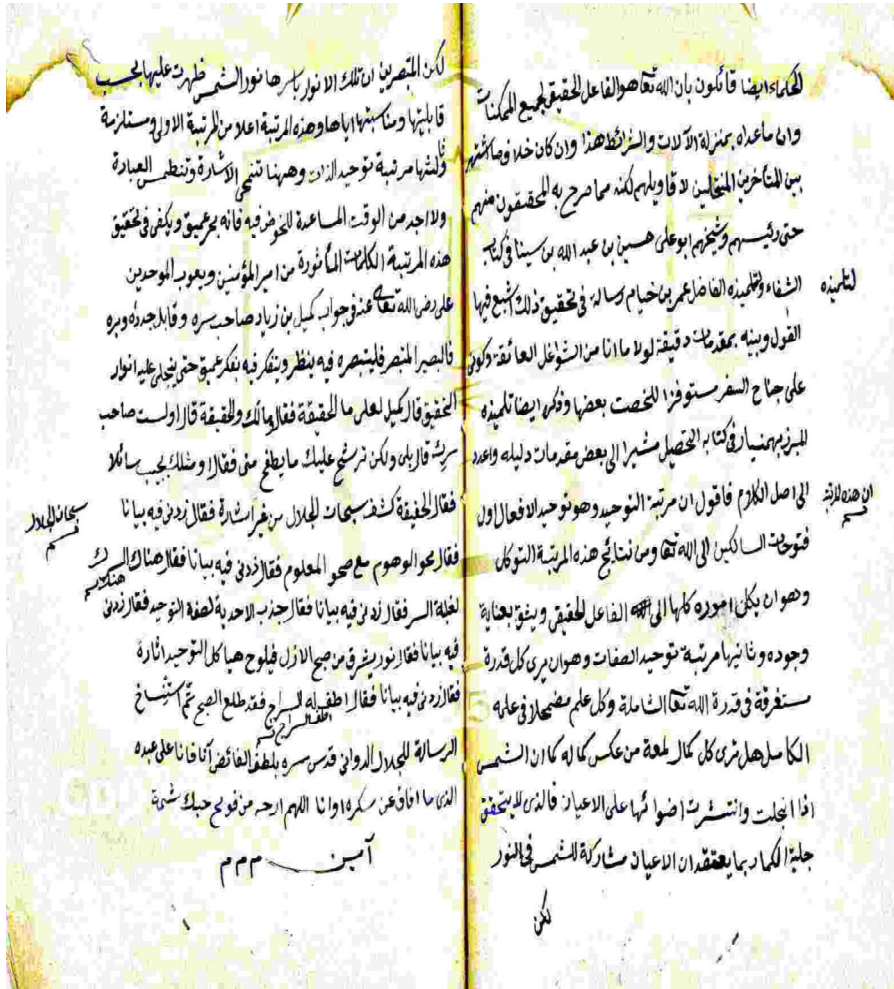 الحكماء ايضا قائلون بان الله تعا هو الفاعل الحقيقي لجميع الممكنات
وان ماعداه بمنزلة الآلات والشرائط هذا وان كان خلاف ما اشتهر
بين المتأخرين المنتحلين لاقاويلهم لكنه مما صرح به المحققون منهم
حتى رئيسهم وشيخهم ابو على حسين بن عبد الله بن سينا فى كتاب
الشفاء ولتلميذه الفاضل عمر بن خيام رسالة فى تحقيق ذلك اشبع فيها
لتلميذه
القول وبينه بمقدمات دقيقة لولا ما انا من الشواغل العائقة وكونى
على جناح السفر مستوفزا للخصت بعضها وذكر ايضا تلميذه
المبرز بهمنيار فى كتابه التحصيل مشيرا الى بعض مقدمات دليله واعدد
الى اصل الكلام فاقول ان مرتبة التوحيد وهو توحيد الافعال اول
ان هذه المرتبة
فتوحات السالكين الى الله تعا ومن نتائج هذه المرتبة التوكل
وهو ان يكل اموره كلها الى الفاعل الحقيقى ويثق بعناية
وجوده وثانيها مرتبة توحيد الصفات وهو ان يرى كل قدرة
مستغرقة فى قدرة الله تعا الشاملة وكل علم مضمحلا فى علمه
الكامل هل ترى كل كمال لمعة من عكس كماله كما ان الشمس
اذا انجلت وانتشرت اضوائها على الاعيان فالذى لا يتحقق
جلية الكمار بما يعتقد ان الاعيان مشاركة للشمس فى النور
لكن
لكن المتبصرين ان تلك الانوار باسرها نور الشمس ظهرت عليها بحسب
قابليتها ومناسبتها اياها وهذه المرتبة اعلا من المرتبة الاولى ومستلزمة
وثالثها مرتبة توحيد الذات وههنا تنمحى الاشارة وتنطمس العبارة
ولا اجد من الوقت المساعدة للخوض فيه فانه بحر عميق ويكفى فى تحقيق
هذه المرتبة الكلمات المأثورة من امير المؤمنين ويعوب الموحدين
على رضى الله تعا عنه فى جواب كميل بن زياد صاحب سره وقابل جدده وبره
فالبصير المتبصر فليتبصره فيه بنظر ويتفكر فيه بفكر عميق حتى ينجلى عليه انوار
التحقيق قال كميل لعلى ما الحقيقة فقال مالك والحقيقة قال اولست صاحب
سرك قال بلى ولكن ترشح عليك ما يطفح منى فقال او مثلك يجيب سائلا
فقال الحقيقة كشف سبحات الجلال من غير اشارة فقال زدنى فيه بيانا
سبحات الجلال
فقال محو الوهوم مع صحو المعلوم فقال زدنى فيه بيانا فقال هناك السر
لغلبة السر فقال زدنى فيه بيانا فقال جذب الاحدية لصفة التوحيد فقال زدنى
فيه بيانا فقال نور يشرق من صبح الازل فيلوح هيا كل التوحيد اثارة
فقال زدنى فيه بيانا فقال اطف له السراج فقد طلع الصبح تم استنساخ
اطف السراج
الرسالة للجلال الدوانى قدس سره بلطف الفائض آنا فانا على عبده
الذى ما افاق عن سكره اوانا اللهم ارحه من فوايح حبك شمة
آمين م م م